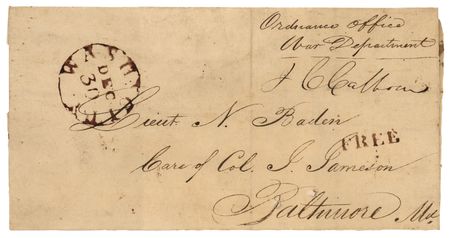 Ordnance Office
War Department
J C Calhoun
WASHN CITY
DEC
30
Lieut. N. Baden
FREE
Care of Col. J. Jameson
Baltimore Md